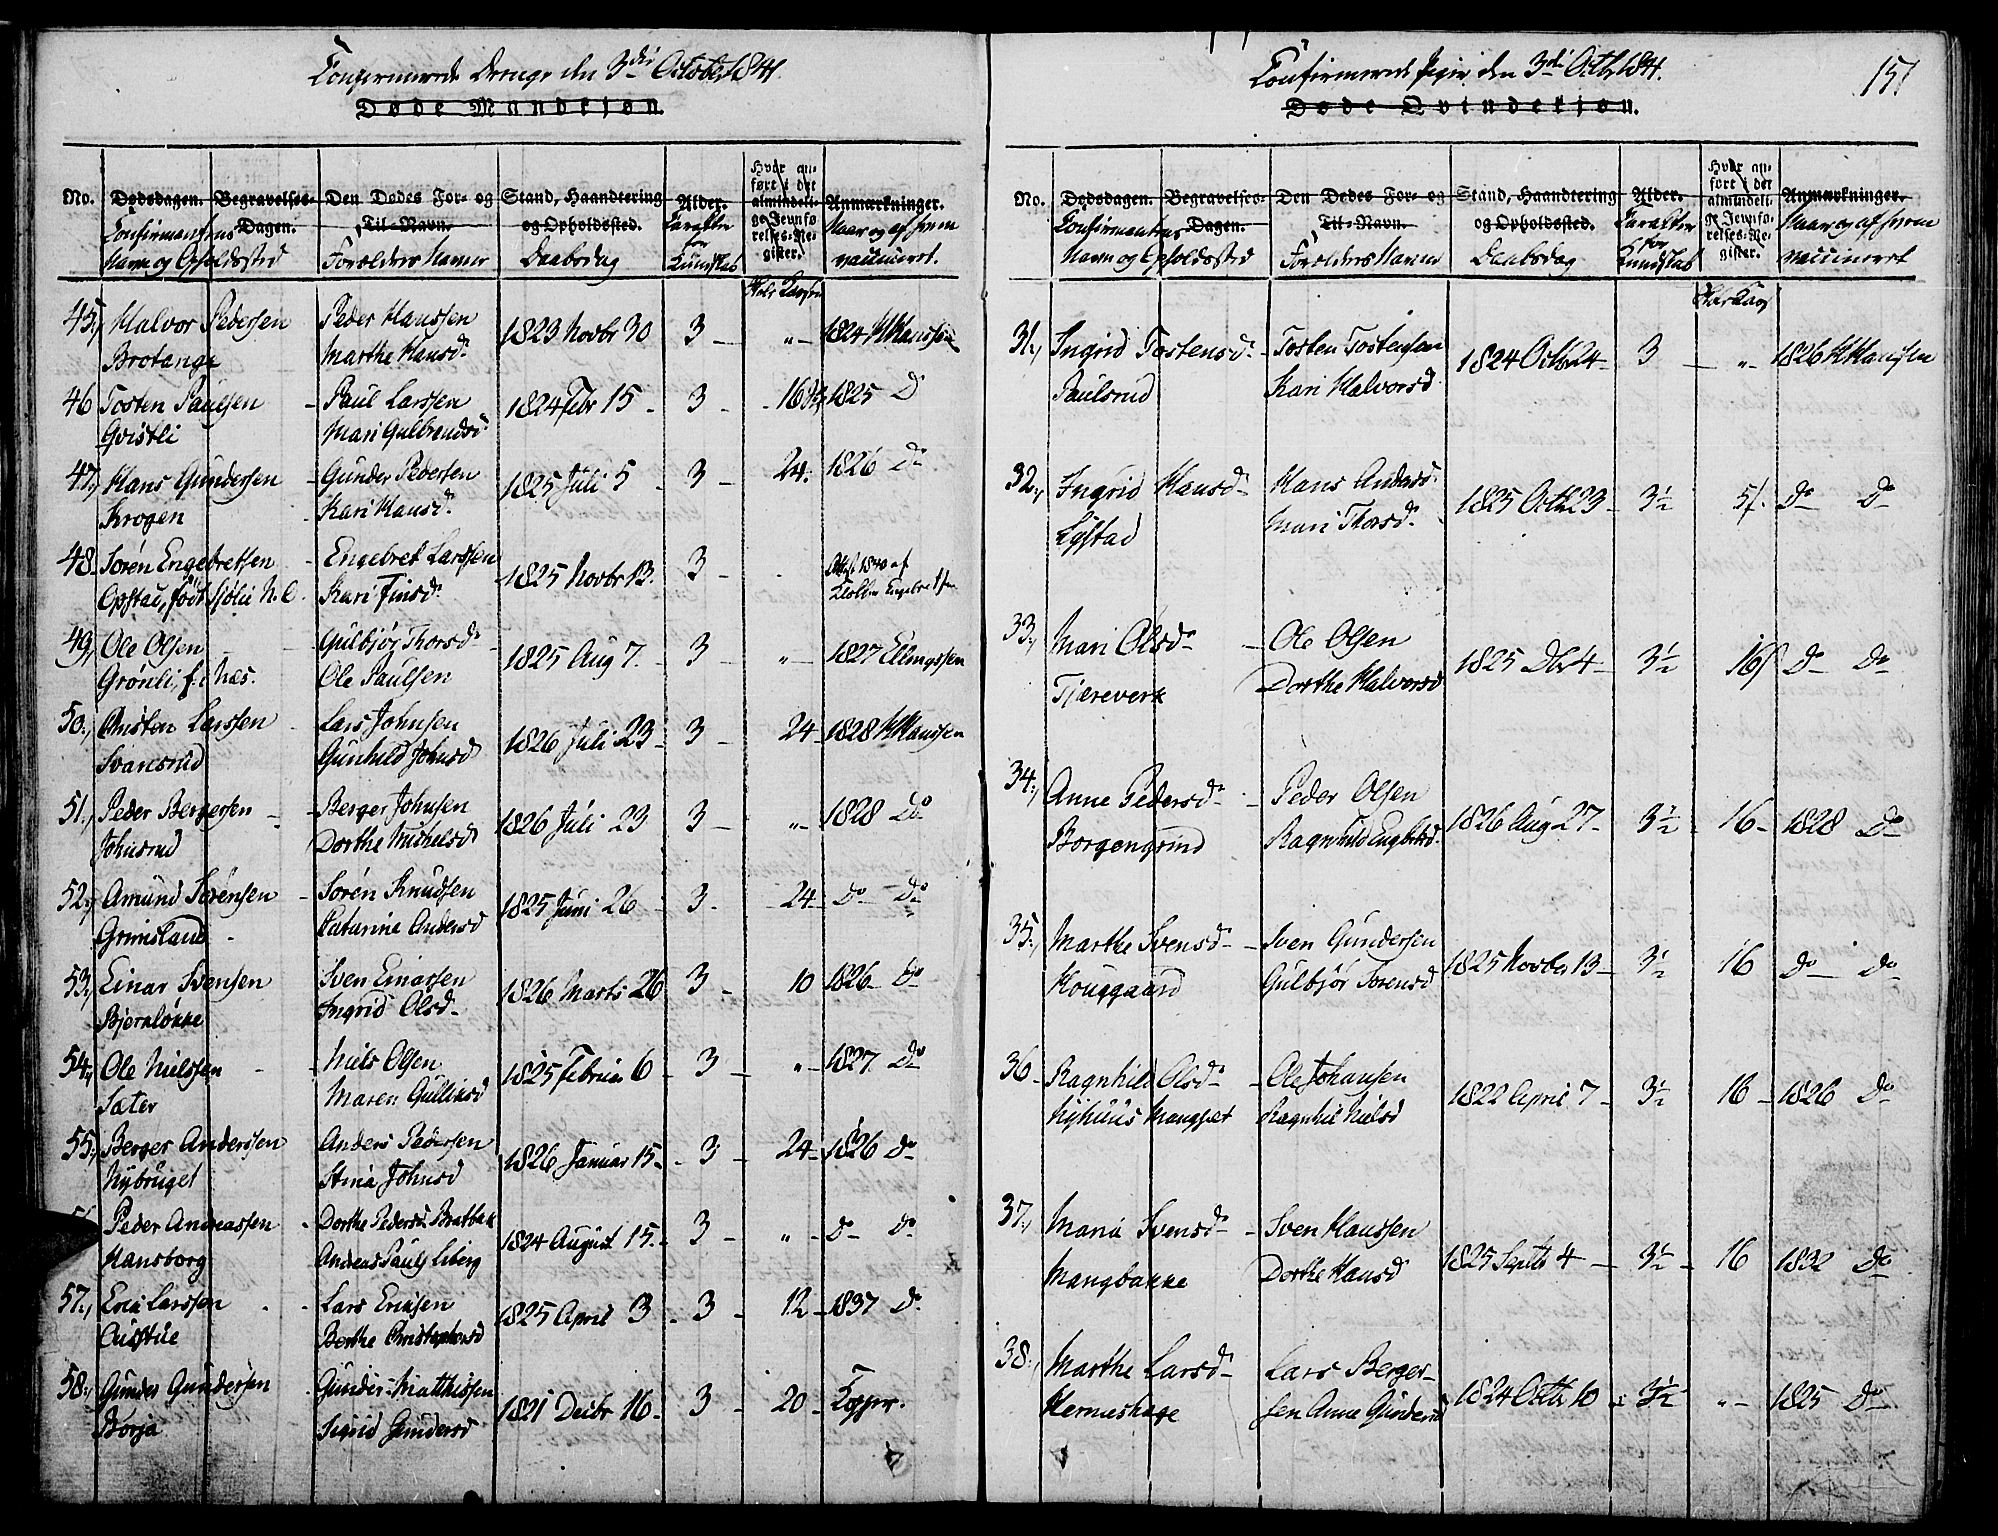 Confirmerede Drenge den 3die Octobr 1841.
Døde Mandkjøn.
No.
Dødsdagen.
Begravelses-Dagen.
Den Dødes For- og Til-Navn.
Stand, Haandtering og Opholdssted.
Alder.
Hvor anført i det almindelige Jevnførelses-Register.
Anmærkninger.
Confirmantens Navn og Opholdssted
Forældres Navne
Daabsdag
Karakter for Kundskab
Naar og af hvem vaccineret.
45, Halvor Pedersen Peder Hanssen 1823 Novbr 30 3 — „ — 1824 HHanssen
Brotange Marthe Hansd.
46 Tosten Paulsen – Paul Larssen 1824 Febr 15 - 3 - 16 1825 Do
Gvistli Mari Gulbrandsd
47, Hans Gundersen – Gunder Pedersen 1825 Juli 5 - 3 - 24. 1826 Do
Krogen - Kari Hansd.
48. Søren Engebretsen – Engebret Larssen 1825 Novbr 13. 3 - 1840 af
Opstad, født Kari Finsd.
49, Ole Olsen – Gulbjør Thorsd 1825 Aug 7. - 3 - „ - 1827 Ellingssen
Grönli, f. i Næs. Ole Paulsen
50, Christen Larssen - Lars Johnsen 1826 Juli 23 - 3 - 24 - 1828 HHanssen
Svaresrud Gunhild Johnsd
51, Peder Bergersen – Berger Johnsen 1826 Juli 23 3 — „ - 1828 Do
Johnsrud Dorthe Michelsd
52, Amund Sørensen – Sørén Knudsen 1825 Juni 26 - 3 - 24 - Do Do
Grimsland - Catarina Andersd
53, Einar Svensen Sven Einarsen 1826 Marts 26 3 - 10 1826 - Do
Bjernløkke Ingrid Olsd
54, Ole Nielssen - Niels Olsen 1825 Februar 6 - 3 - „ - 1827. Do
Sæter Maren Gulliksd
55, Berger Anderssen Anders Pedersen 1826 Januar 15 - 3 - 24 - 1826 Do
Nybruget Stina Johnsd
Peder Andreassen - Dorthe Pedersd. Bratbak 1824 August 15. - 3 - „ - Do Do
Hansborg Andreas Pauls Liberg
57, Eric Larssen - Lars Ericsen 1825 April 3 - 3 - 12 - 1837 Do
Berthe Christophersd
58, Gunder Gundersen - Gunder Matthissen 1821 Decbr 16 - 3 - 20 - Kopper.
Borja Sigrid Gundersd
Confirmerede Piger den 3die Octbr 1841.
157
Døde Qvindekjøn.
No.
Dødsdagen.
Begravelses-Dagen.
Den Dødes For- og Til-Navn.
Stand, Haandtering og Opholdssted.
Alder.
Hvor anført i det almindelige Jevnførelses-Register.
Anmærkninger.
Confirmantens Navn og Opholdssted
Forældres Navne
Daabsdag
Karakter for Kundskab
Naar og af hvem vaccineret
31, Ingrid Tostensd. - Tosten Tostensen 1824 Octbr 24 - 3 — „ - 1826 HHanssen
Paulsrud Kari Halvorsd.
32, Ingrid Hansd - Hans Anders. 1825 Octbr 23 - 3½ 5/. Do Do
Egstad Mari Thorsd.
33, Mari Olsd — Ole Olsen 1825 Dbr 4 - 3½ 16/ Do Do
Tjæreverk Dorthe Halvorsd
34, Anne Pedersd — Peder Olsen 1826 Aug 27 - 3½ - 16 - 1828 Do
Borgengrind Ragnhild Engbretsd.
35, Marthe Svensd — Sven Gundersen 1825 Novbr 13 - 3½ 16 Do Do
Houggaard Gulbjør Sorensd
36 - Ragnhild Olsd - Ole Johansen 1822 April 7 - 3½ - 16 - 1826 Do
Nyhuus Ragnhil Nielsd
37, Maria Svensd — Sven Hanssen 1825 Septb 4 — 3½ - 16 1832 Do
Mangbakke Dorthe Hansd
38, Marthe Larsd - Lars Berger- 1824 Octbr 10 3½ „ - 1825 Do
Herneshage sen Anne Gundersd